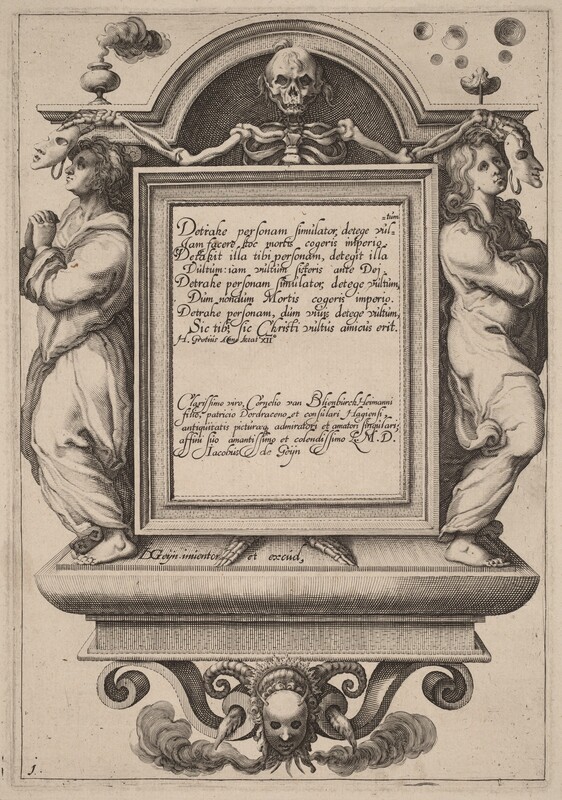 Detrahe personam simulator, detege vul-
tum
Jam facere hoc mortis cogeris imperio.
Detrahit illa tibi personam, detegit illa
Vultum: iam vultum sisteris ante Dei
Detrahe personam simulator, detege vultum,
Dum nondum Mortis cogeris imperio.
Detrahe personam, dum vivis, detege vultum,
Sic tibi, sic Christi vultus amicus erit.
H. Grotius
Clarissimo viro, Cornelio van Blyenburch Heimanni
filio, patricio Dordraceno et consulari Hagiensi,
antiquitatis picturæq, admiratori et amatori singulari;
affini suo amantissimo et colendissimo L. M. D.
Jacobus de Geÿn
DGeÿn inuentor et excud,
1.